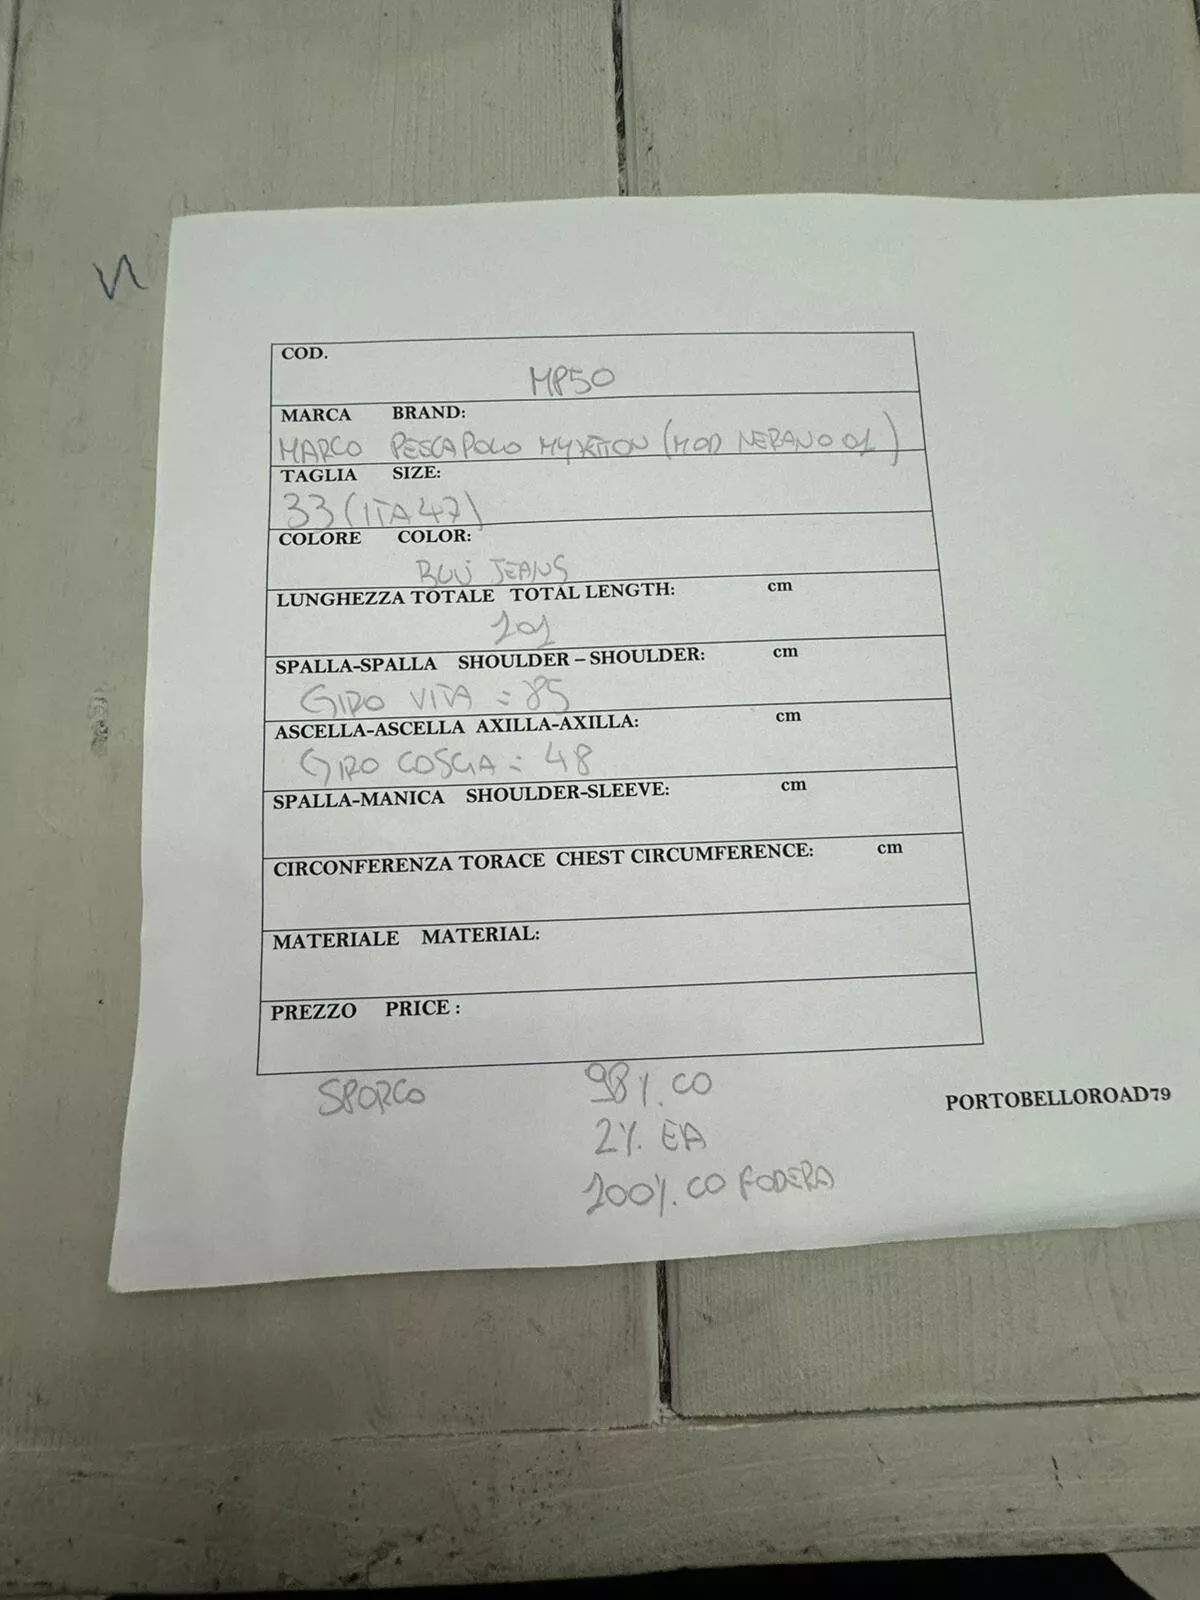 COD.
MP50
MARCA BRAND:
MARCO PESCAPOLO MYKTION (MOD NERANO 01)
TAGLIA SIZE:
33 (ITA 47)
COLORE COLOR:
BLU JEANS
LUNGHEZZA TOTALE TOTAL LENGTH: cm
101
SPALLA-SPALLA SHOULDER – SHOULDER: cm
GIRO VITA = 85
ASCELLA-ASCELLA AXILLA-AXILLA: cm
GIRO COSCIA = 48
SPALLA-MANICA SHOULDER-SLEEVE: cm
CIRCONFERENZA TORACE CHEST CIRCUMFERENCE: cm
MATERIALE MATERIAL:
PREZZO PRICE :
SPORCO 98% CO
2% EA
100% CO FODERA
PORTOBELLOROAD79